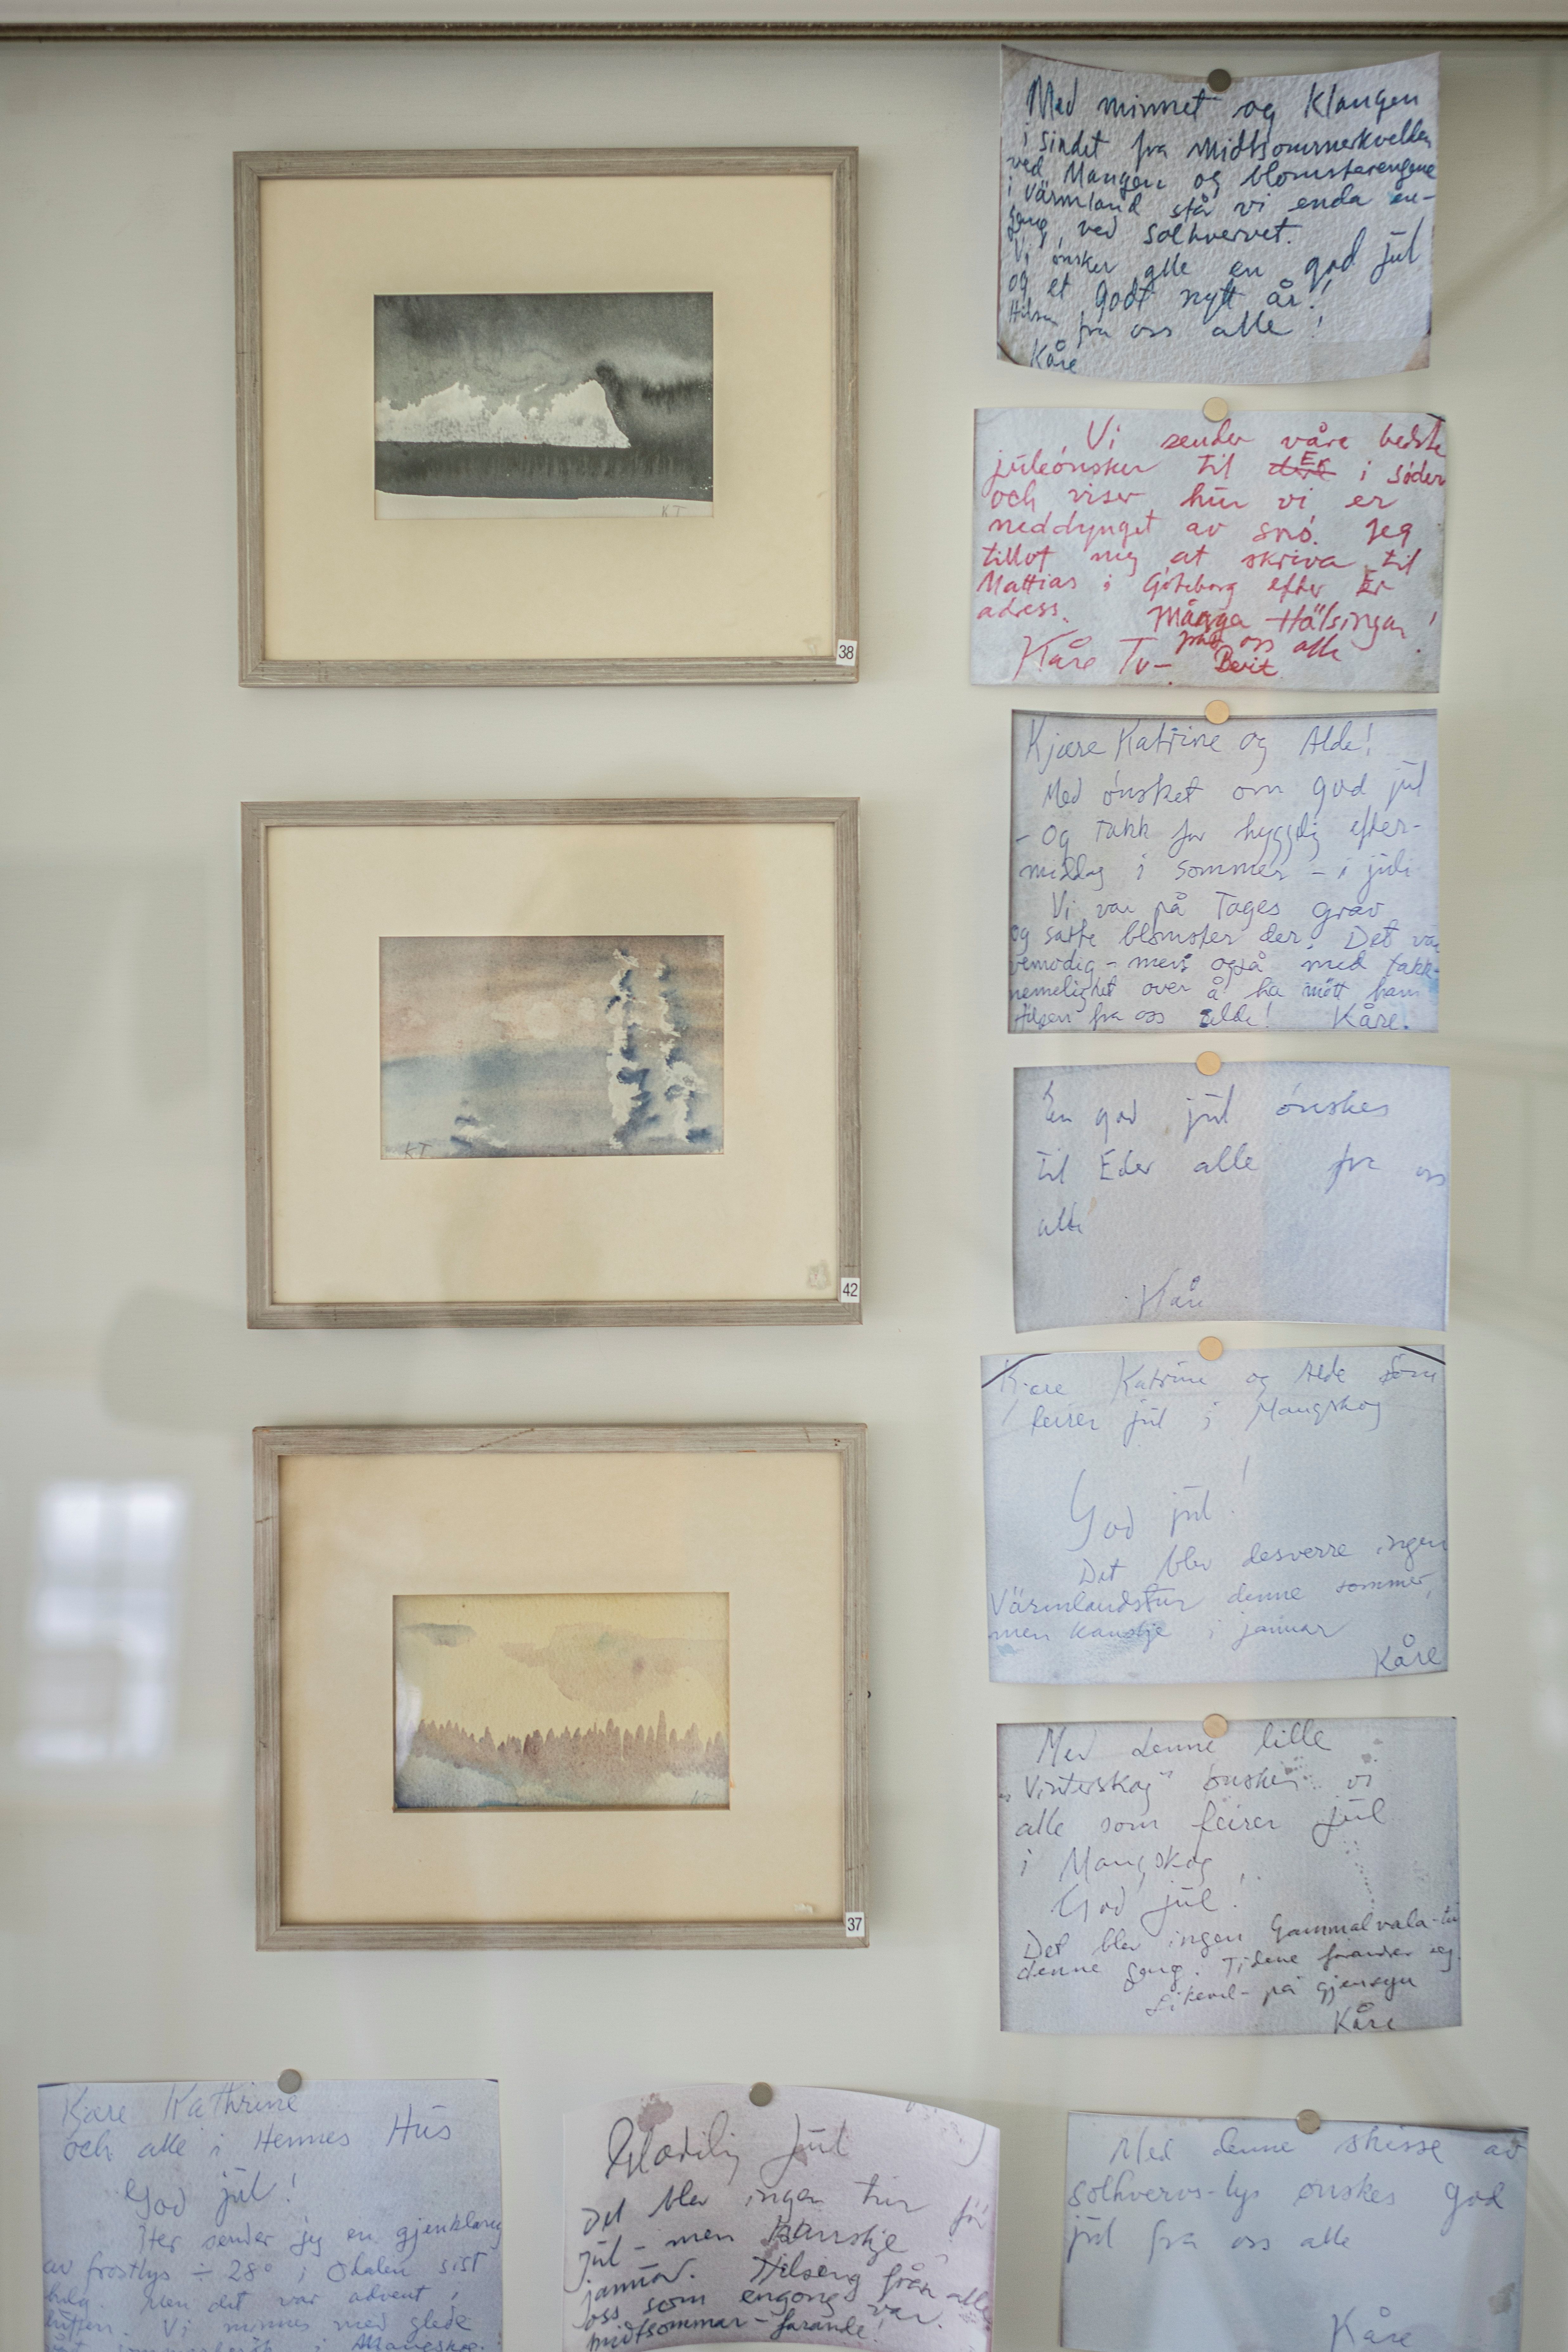 Med minnet og klangen
i sindet fra midtsommerkvelden
ved Mangen og blomsterengene
i Värmland står vi enda en-
gang ved solhvervet.
Vi ønsker alle en god jul
og et godt nytt år!
Hilsen fra oss alle!
Kåre
Vi sender våre bedste
juleönsker til Er i söder
och viser hur vi er
neddynget av snö. Jeg
tillot mig at skriva til
Mattias i Göteborg efter Er
adress. Många Hälsingar!
från oss alle
Kåre Tv- Berit
Kjære Katrine og Alde!
Med önsket om god jul
- Og takk for hyggelig efter-
middag i sommer - i juli
Vi var på Tages grav
og satte blomster der. Det var
vemodig - men også med takk-
nemelighet over å ha mött ham
Hilsen fra oss alle! Kåre.
En god jul önskes
til Eder alle fra oss
alle
Kåre
Kjære Katrine og Alde som
feirer jul i Mangskog
God jul!
Det blev desverre ingen
Värmlandstur denne sommer,
men kanskje i januar
Kåre
Med denne lille
"Vinterskog" önsker vi
alle som feirer jul
i Mangskog
God jul!
Det blev ingen Gammalvala-tur
denne gang. Tidene forandrer seg.
Likevel - på gjensyn
Kåre
KT
38
KT
42
37
Kjære Kathrine
och alle i Hennes Hus
God jul!
Her sender jeg en gjenklang
av frostlys ÷ 28° i Odalen sist
helg. Men det var advent i
luften. Vi minnes med glede
i Mangskog.
Gledelig Jul
Det blev ingen tur för
jul - men kanskje i
januar. Hilsing från alle
oss som engong var
midtsommar-farande!
Med denne skisse av
solhvervs-lys önskes god
jul fra oss alle
Kåre